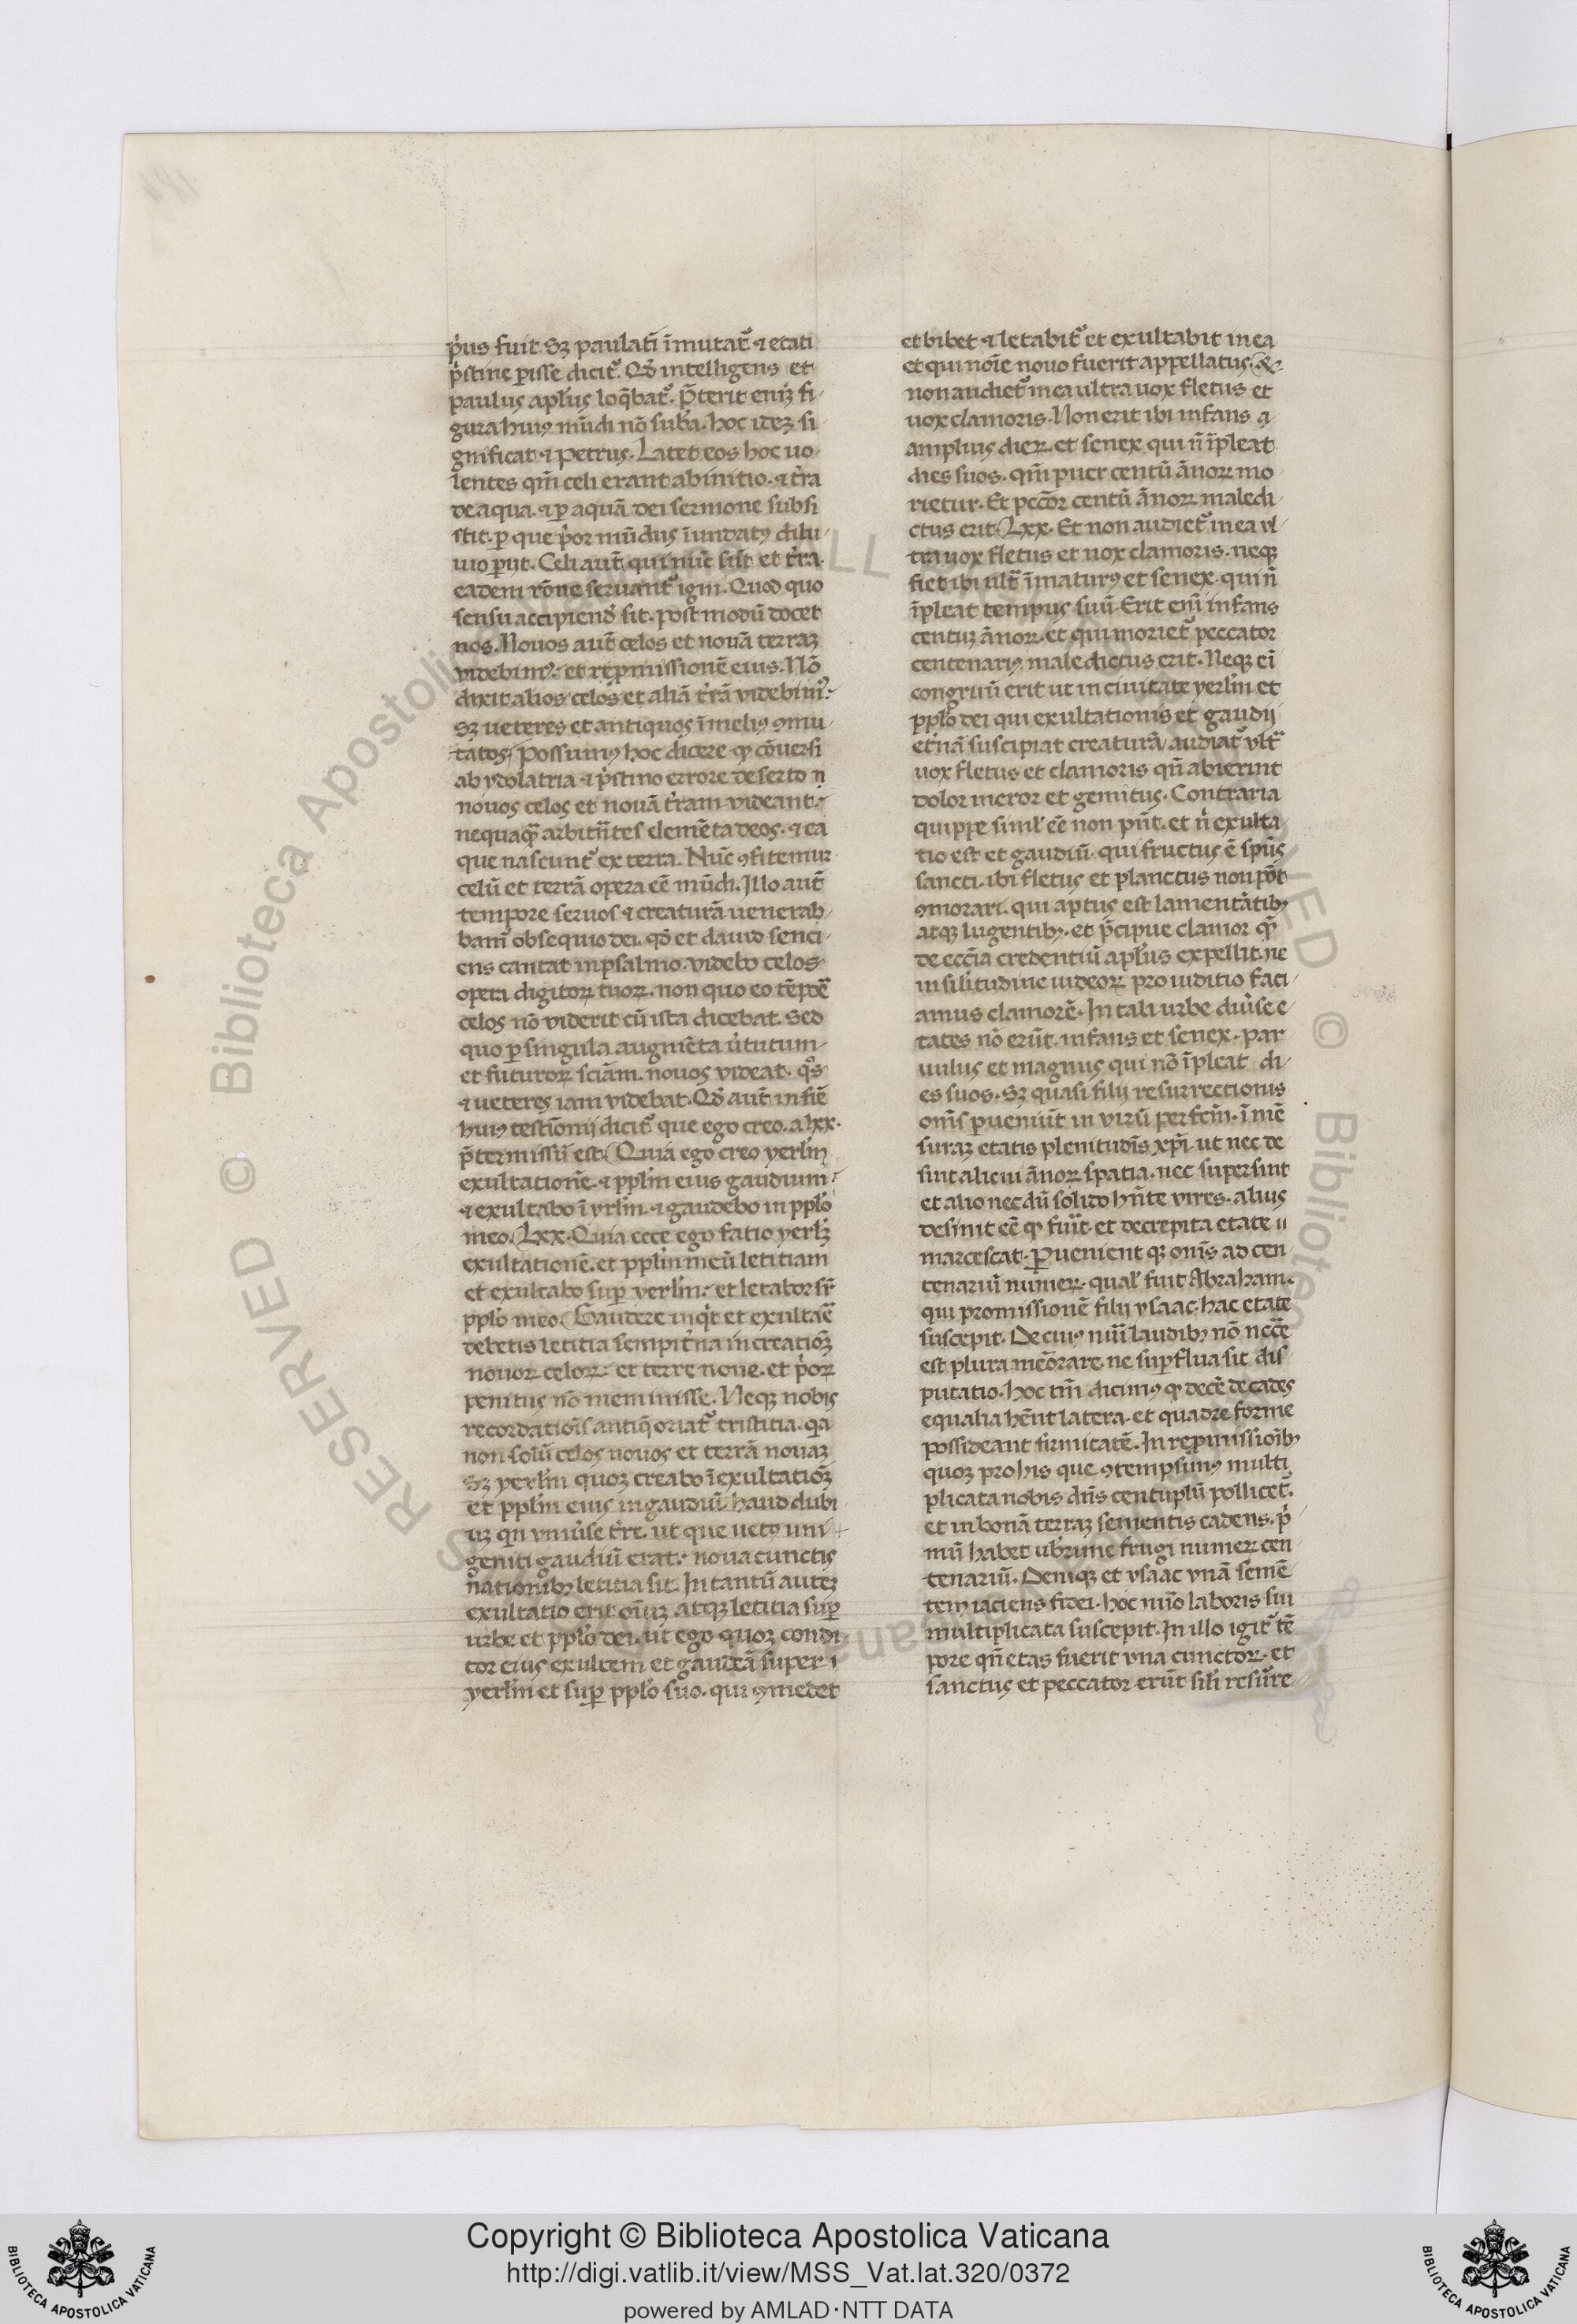 p̓us fuit. Sꝫ paulatī īmutat᷑ ⁊ etati
p̓stine ꝑisse dicit᷑. Qđ intelligens et
paulus apl̓us loq̄bat᷑. P̄terit enīꝫ fi-
gura huiꝰ mūdi nō sub̄a. hoc ideꝫ si-
gnificat ⁊ Petrus. Latet eos hoc uo-
lentes qm̄ celi erant ab initio. ⁊ t̓ra
de aqua. ⁊ ꝑ aquā dei sermone subsi-
stit. ꝑ que p̓or mūdus īundatꝰ dilu-
uio ꝑijt. Celi aut̄ qui nūc sūt et t̓ra
eadem rōne seruant᷑ igni. Quod quo
sensu accipiendū sit. post modū docet
nos. Nouos aut̄ celos et nouā terraꝫ
videbimꝰ: et reꝓmissionē eius. Nō
dixit alios celos et aliā t̓rā videbimꝰ:
Sꝫ ueteres et antiquos ī meliꝰ ꝯmu-
tatos. Possumꝰ hoc dicere ꝙ cōuersi
ab ydolatria ⁊ p̓stino errore deserto
nouos celos et nouā t̓ram videant:
nequaqȝ̄ arbitn̄tes elemēta deos. ⁊ ea
que nascunt᷑ ex terra. Nūc ꝯfitemur
celū et terrā opera eē mūdi. Illo aut̄
tempore seruos ⁊ creaturā uenerab-
bam̄ obsequio dei. qđ et dauid senci-
ens cantat in psalmo. videbo celos
opera digitoꝝ tuoꝝ. non quo eo tp̄e
celos nō viderit cū ista dicebat. Sed
quo ꝑ singula augmēta ūtutum
et futuroꝝ sciām. nouos videat. qͦs
⁊ ueteres iam videbat. Qđ aut̄ in fiē
huiꝰ testiōnij dicit᷑ que ego creo. a lxx.
p̄termissū est. Quia ego creo yerl̄m
exultationē. ⁊ ppl̄m eius gaudium:
⁊ exultabo ī yrl̄m. ⁊ gaudebo in ppl̓o
meo. Lxx. Quia ecce ego fatio yerl̄ꝫ
exultationē. et ppl̄m meū letitiam
et exultabo suꝑ yerl̄m: et letabor sr̄
ppl̓o meo. Gaudere inqͥt et exultar̄e
debetis letitia sempit̓na in creatiōꝫ
nouoꝝ celoꝝ: et terre noue. et p̓oꝝ
penitus nō meminisse. Neqꝫ nobis
recordatiōis antiq̄ oriat᷑ tristitia. qꝛ
non solū celos nouos et terrā nouaꝫ
Sꝫ yerl̄m quoqꝫ creabo ī exultatiōꝫ
et ppl̄m eius in gaudiū haud dubi
uꝫ qn̄ vniūse t̓re. ut que uetꝰ uni
geniti gaudiū erat: noua cunctis
nationibꝫ letitia sit. In tantū auteꝫ
exultatio erit oīuꝫ atqꝫ letitia suꝑ
urbe et ppl̓o dei. ut ego quoqꝫ condi-
tor eius exultem et gaudeā super
yerl̄m et suꝑ ppl̓o suo. qui ꝯmedet
et bibet ⁊ letabit᷑ et exultabit in ea
et qui noīe nouo fuerit appellatus. &
non audiet᷑ in ea ultra uox fletus et
uox clamoris. Non erit ibi infans a
amplius dieꝝ. et senex qui n̄ īpleat
dies suos. qm̄ puer centū ānoꝝ mo
rietur. Et pccōr centū ānoꝝ maledi-
ctus erit. Lxx. Et non audiet᷑ in ea vl-
tra uox fletus et uox clamoris. neqꝫ
fiet ibi ult̄ īmaturꝰ et senex qui n̄
īpleat tempus suū. Erit enī infans
centuꝫ ānoꝝ. et qui moriet᷑ peccator
centenariꝰ maledictus erit. Neqꝫ eī
congruū erit ut in ciuitate yerl̄m et
ppl̓o dei qui exultationis et gaudij
et̓nā suscipiat creaturā audiat᷑ vlt̄
uox fletus et clamoris qn̄ abierint
dolor meror et gemitus. Contraria
quippe simĺ eē non pn̄t. et ū exulta
tio est et gaudiū. qui fructus ē spūs
sancti. ibi fletus et planctus non pōt
ꝯmorari. qui aptus est lamentātibꝫ
atqꝫ lugentibꝫ. et p̄cipue clamor quē
de ecc̄ia credentiū apl̓us expellit. ne
in silitudine iudeoꝝ pro iuditio faci-
amus clamorē. In tali urbe diūse e-
tates nō erūt. infans et senex. par
uulus et magnus qui nō īpleat di-
es suos. Sꝫ quasi filij resurrectionis
om̄s ꝑueniūt in virū perfcm̄. ī mē
suraꝫ etatis plenitudīs xp̄i. ut nec de
sint alicui ānoꝝ spatia. nec supersint
et alio necdū solido hn̄te vires. alius
desinit eē ꝙ fuit̄. et decrepita etate
marcescat. Ꝑuenient qꝫ om̄s ad cen
tenariū numeꝝ. qual̓ fuit Abraham.
qui promissionē filij ysaac. hac etate
suscepit. De cuiꝰ nūi laudibꝫ nō nccē
est plura memōrare. ne suꝑflua sit dis
putatio. hoc tm̄ dicimꝰ ꝙ decē decades
equalia hēnt latera. et quadre forme
possideant firmitatē. In reꝓmissiōibꝫ
quoqꝫ pro his que ꝯtempsimꝰ multi
plicata nobis dn̄s centuplū pollicet᷑.
et in bonā terraꝫ sementis cadens. p̓
mū habet ub̓rime frugi numeꝝ cen
tenariū. Deniqꝫ et ysaac vnā semē
tem iaciens fidei. hoc nūo laboris sui
multiplicata suscepit. In illo igit᷑ tē
pore qn̄ etas fuerit vna cunctoꝝ. et
sanctus et peccator erūt sil̓i resur̄e
Copyright © Biblioteca Apostolica Vaticana
http://digi.vatlib.it/view/MSS_Vat.lat.320/0372
powered by AMLAD·NTT DATA